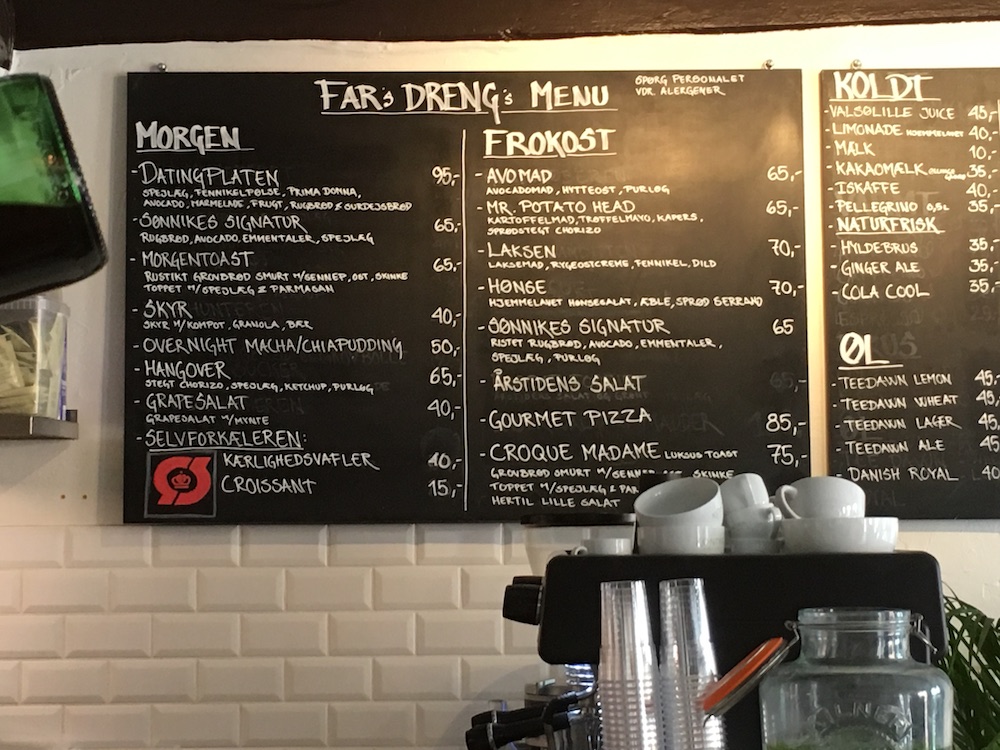 FAR's DRENG's MENU
SPØRG PERSONALET
VDR. ALERGENER
MORGEN
- DATINGPLATEN 95,-
SPEJLÆG, FENNIKELPØLSE, PRIMA DONNA,
AVOCADO, MARMELADE, FRUGT, RUGBRØD & SURDEJSBRØD
- SØNNIKES SIGNATUR 65,-
RUGBRØD, AVOCADO, EMMENTALER, SPEJLÆG
- MORGENTOAST 65,-
RUSTIKT GROVBRØD SMURT M/SENNEP, OST, SKINKE
TOPPET M/SPEJLÆG & PARMASAN
- SKYR 40,-
SKYR M/KOMPOT, GRANOLA, BÆR
- OVERNIGHT MACHA/CHIAPUDDING 50,-
- HANGOVER 65,-
STEGT CHORIZO, SPEJLÆG, KETCHUP, PURLØG
- GRAPESALAT 40,-
GRAPESALAT M/MYNTE
- SELVFORKÆLEREN:
KÆRLIGHEDSVAFLER 40,-
CROISSANT 15,-
FROKOST
- AVOMAD 65,-
AVOCADOMAD, HYTTEOST, PURLØG
- MR. POTATO HEAD 65,-
KARTOFFELMAD, TRØFFELMAYO, KAPERS,
SPRØDSTEGT CHORIZO
- LAKSEN 70,-
LAKSEMAD, RYGEOSTCREME, FENNIKEL, DILD
- HØNSE 70,-
HJEMMELAVET HØNSESALAT, ÆBLE, SPRØD SERRANO
- SØNNIKES SIGNATUR 65
RISTET RUGBRØD, AVOCADO, EMMENTALER,
SPEJLÆG, PURLØG
- ÅRSTIDENS SALAT 65,-
- GOURMET PIZZA 85,-
- CROQUE MADAME LUKSUS TOAST 75,-
GROVBRØD SMURT M/SENNEP OST, SKINKE
TOPPET M/SPEJLÆG & PAR
HERTIL LILLE SALAT
KOLDT
- VALSØLILLE JUICE 45,-
- LIMONADE HJEMMELAVET 40,-
- MÆLK 10,-
- KAKAOMÆLK 35,-
- ISKAFFE 40,-
- PELLEGRINO 0,5L 35,-
NATURFRISK
- HYLDEBRUS 35,-
- GINGER ALE 35,-
- COLA COOL 35,-
ØL
- TEEDAWN LEMON 45,-
- TEEDAWN WHEAT 45,-
- TEEDAWN LAGER 45,-
- TEEDAWN ALE 45,-
- DANISH ROYAL 40